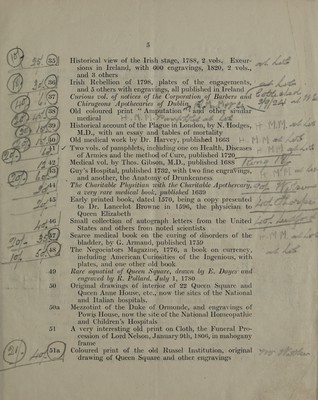 5
35 Historical view of the Irish stage, 1788, 2 vols., Excur-
sions in Ireland, with 600 engravings, 1820, 2 vols.,
and 3 others
36 Irish Rebellion of 1798, plates of the engagements,
and 5 others with engravings, all published in Ireland
37 Curious vol. of notices of the Corporation of Barbers and
Chirurgeons Apothecaries of Dublin,
38 Old coloured print "Amputation" and other similar
medical
39 Historical account of the Plague in London, by N. Hodges,
M.D., with an essay and tables of mortality
40 Old medical work by Dr. Harvey, published 1663
41 Two vols. of pamphlets, including one on Health, Diseases
of Armies and the method of Cure, published 1720
42 Medical vol. by Thos. Gibson, M.D., published 1688
43 Guy's Hospital, published 1732, with two fine engravings,
and another, the Anatomy of Drunkenness
44 The Charitable Physition with the Charitable Apothecary,
a very rare medical book, published 1639
45 Early printed book, dated 1370, being a copy presented
to Dr. Lancelot Browne in 1596, the physician to
Queen Elizabeth
46 Small collection of autograph letters from the United
States and others from noted scientists
47 Scarce medical book on the curing of disorders of the
bladder, by G. Armand, published 1759
48 The Negociators Magazine, 1776, a book on currency,
including American Curiosities of the Ingenious, with
plates, and one other old book
49 Rare aquatint of Queen Square, drawn by E. Dayes and
engraved by R. Pollard, July 1, 1786
50 Original drawings of interior of 22 Queen Square and
Queen Anne House, etc., now the sites of the National
and Italian hospitals.
50a Mezzotint of the Duke of Ormonde, and engravings of
Powis House, now the site of the National Homœopathic
and Children's Hospitals
51 A very interesting old print on Cloth, the Funeral Pro-
cession of Lord Nelson, January 9th, 1806, in mahogany
frame
51a Coloured print of the old Russel Institution, original
drawing of Queen Square and other engravings